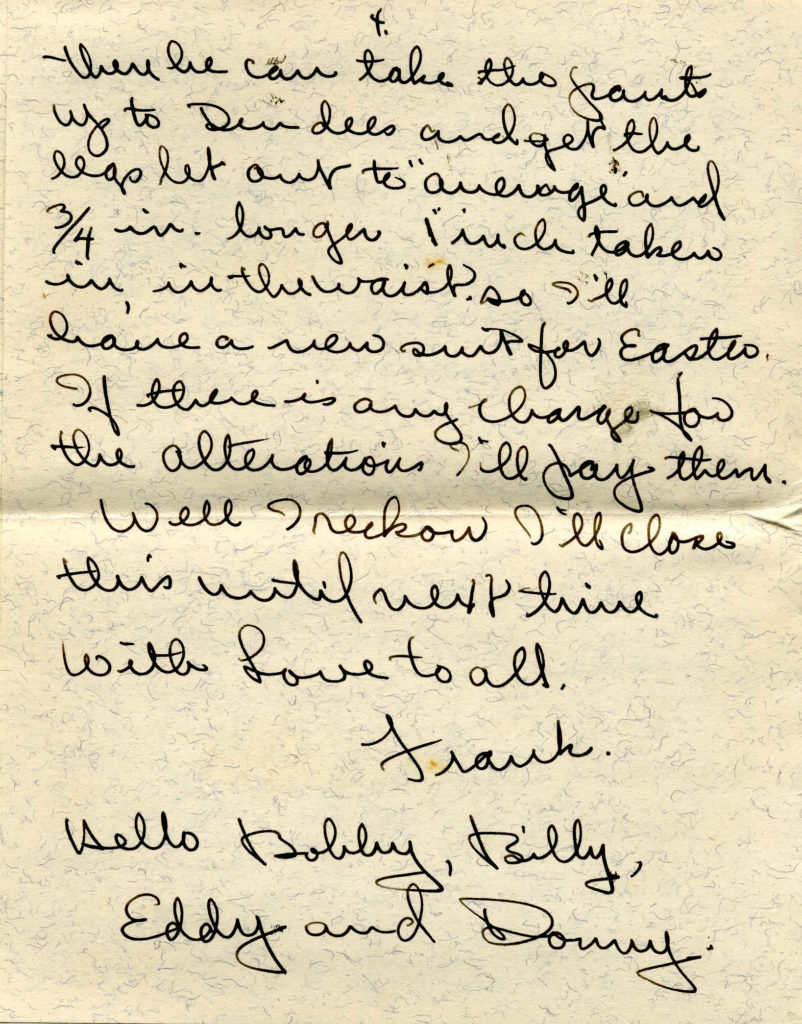 4.
there he can take the pants
up to Dundees and get the
legs let out to "average" and
3/4 in. longer 1 inch taken
in, in the waist. so I'll
have a new suit for Easter.
If there is any charge for
the alterations I'll pay them.
Well I reckon I'll close
this until next time
With Love to all.
Frank.
Hello Bobby, Billy,
Eddy and Donny.